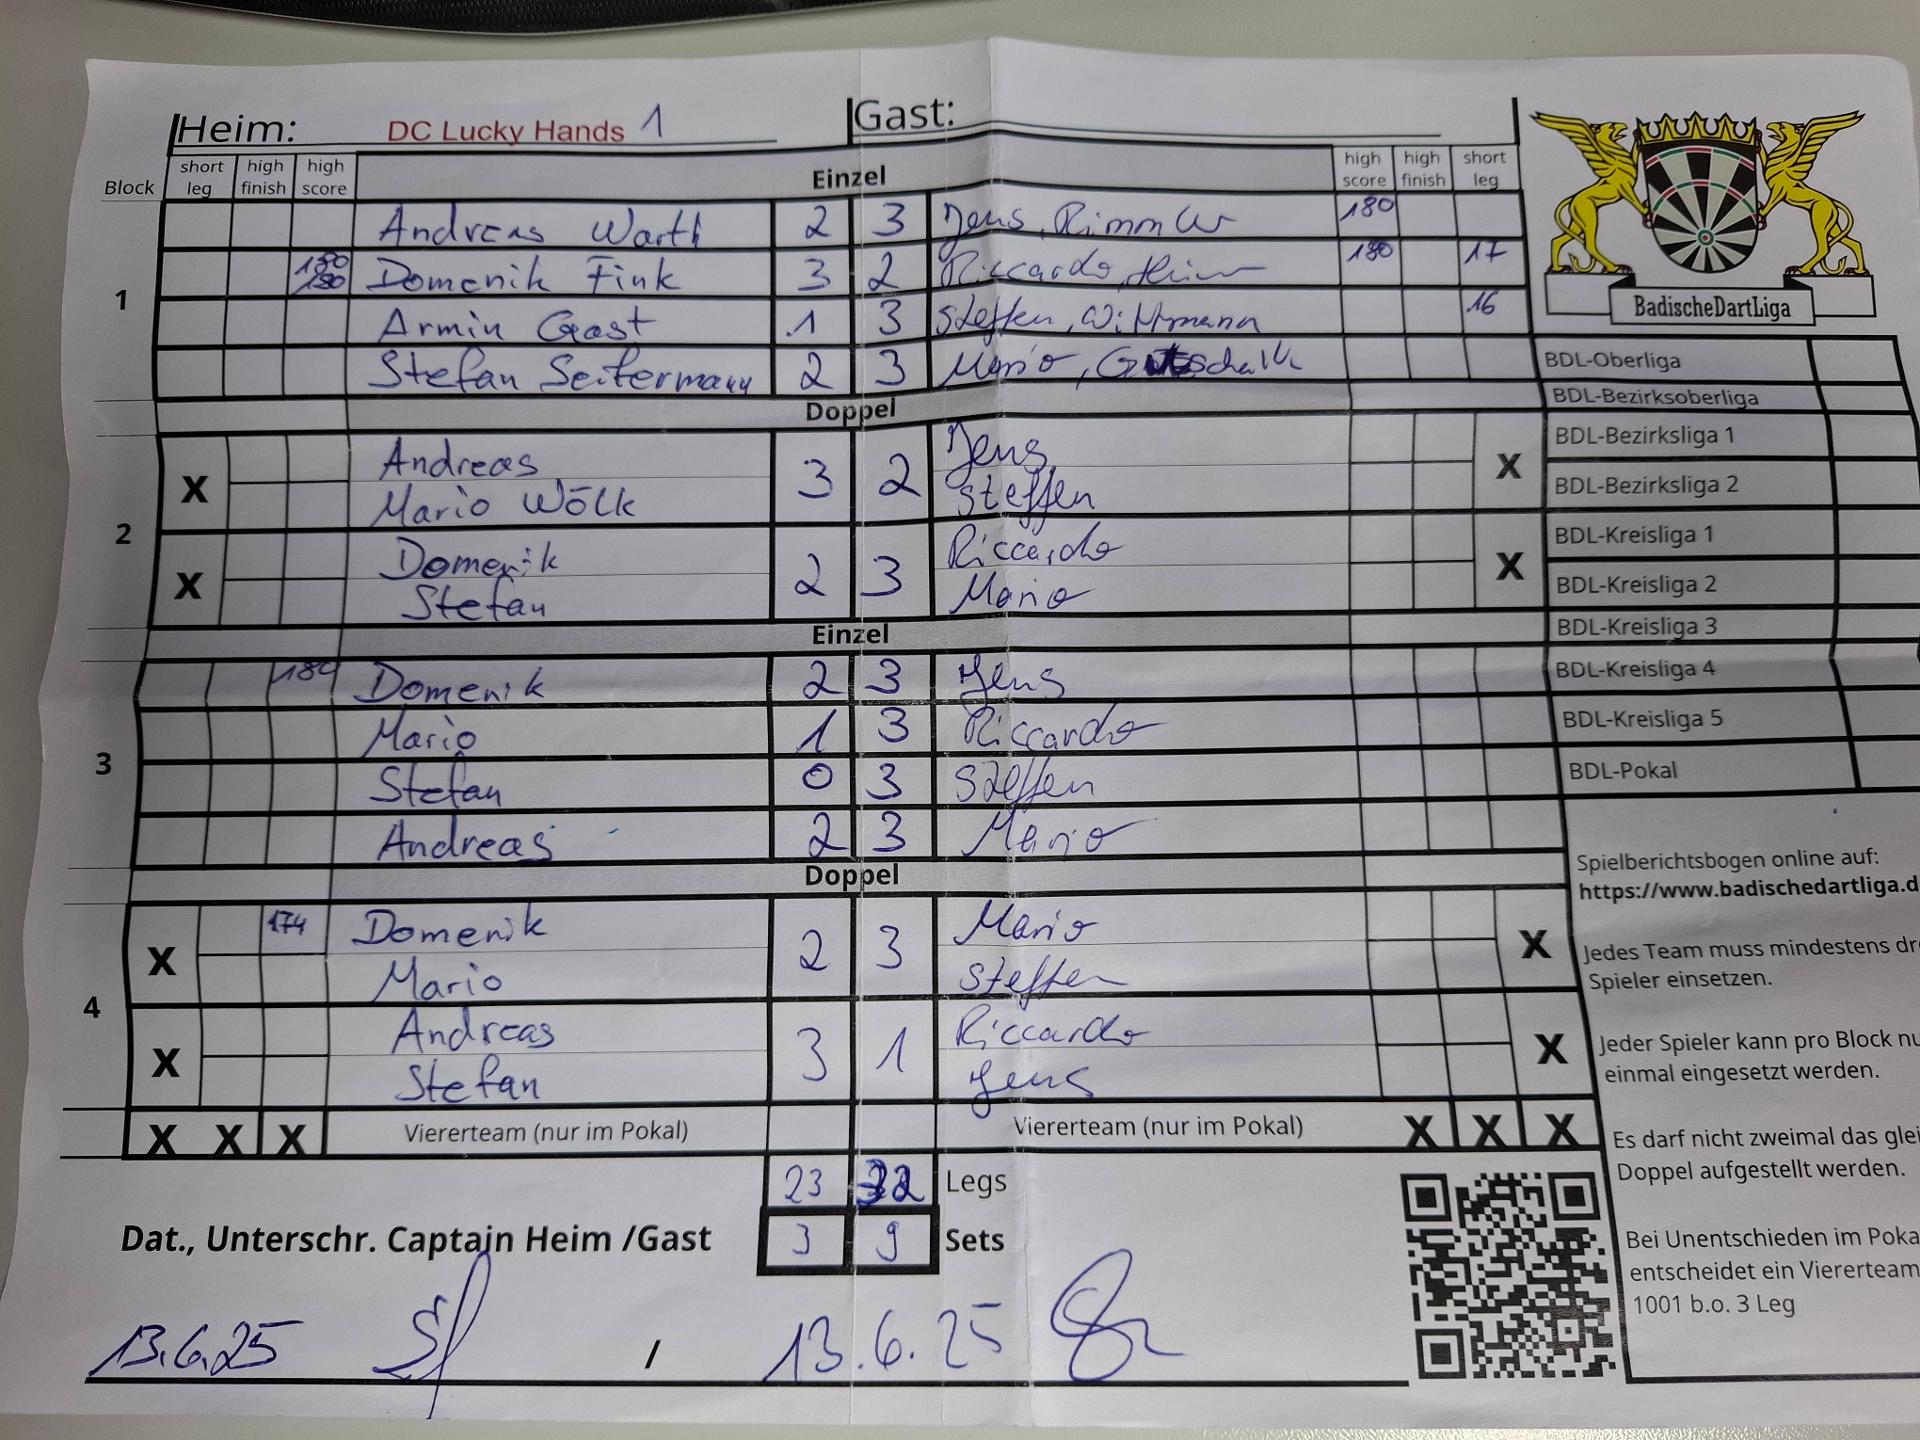 Heim: DC Lucky Hands 1 Gast:
Block short leg high finish high score Einzel high score high finish short leg
1
Andreas Warth 2 3 Jens, 180
180 180 Domenik Fink 3 2 Riccardo, 180 17
Armin Gast 1 3 Steffen, Wittmann 16
Stefan Seitermann 2 3 Mario,
Doppel
2
X Andreas 3 2 Jens X
Mario Wölk Steffen
X Domenik 2 3 Riccardo X
Stefan Mario
Einzel
3
180 Domenik 2 3 Jens
Mario 1 3 Riccardo
Stefan 0 3 Steffen
Andreas 2 3 Mario
Doppel
4
X 174 Domenik 2 3 Mario X
Mario Steffen
X Andreas 3 1 Riccardo X
Stefan Jens
X X X Viererteam (nur im Pokal) Viererteam (nur im Pokal) X X X
23 32 Legs
Dat., Unterschr. Captain Heim /Gast 3 9 Sets
13.6.25 / 13.6.25
BadischeDartLiga
BDL-Oberliga
BDL-Bezirksoberliga
BDL-Bezirksliga 1
BDL-Bezirksliga 2
BDL-Kreisliga 1
BDL-Kreisliga 2
BDL-Kreisliga 3
BDL-Kreisliga 4
BDL-Kreisliga 5
BDL-Pokal
Spielberichtsbogen online auf:
https://www.badischedartliga.d
Jedes Team muss mindestens dr
Spieler einsetzen.
Jeder Spieler kann pro Block nu
einmal eingesetzt werden.
Es darf nicht zweimal das glei
Doppel aufgestellt werden.
Bei Unentschieden im Poka
entscheidet ein Viererteam
1001 b.o. 3 Leg